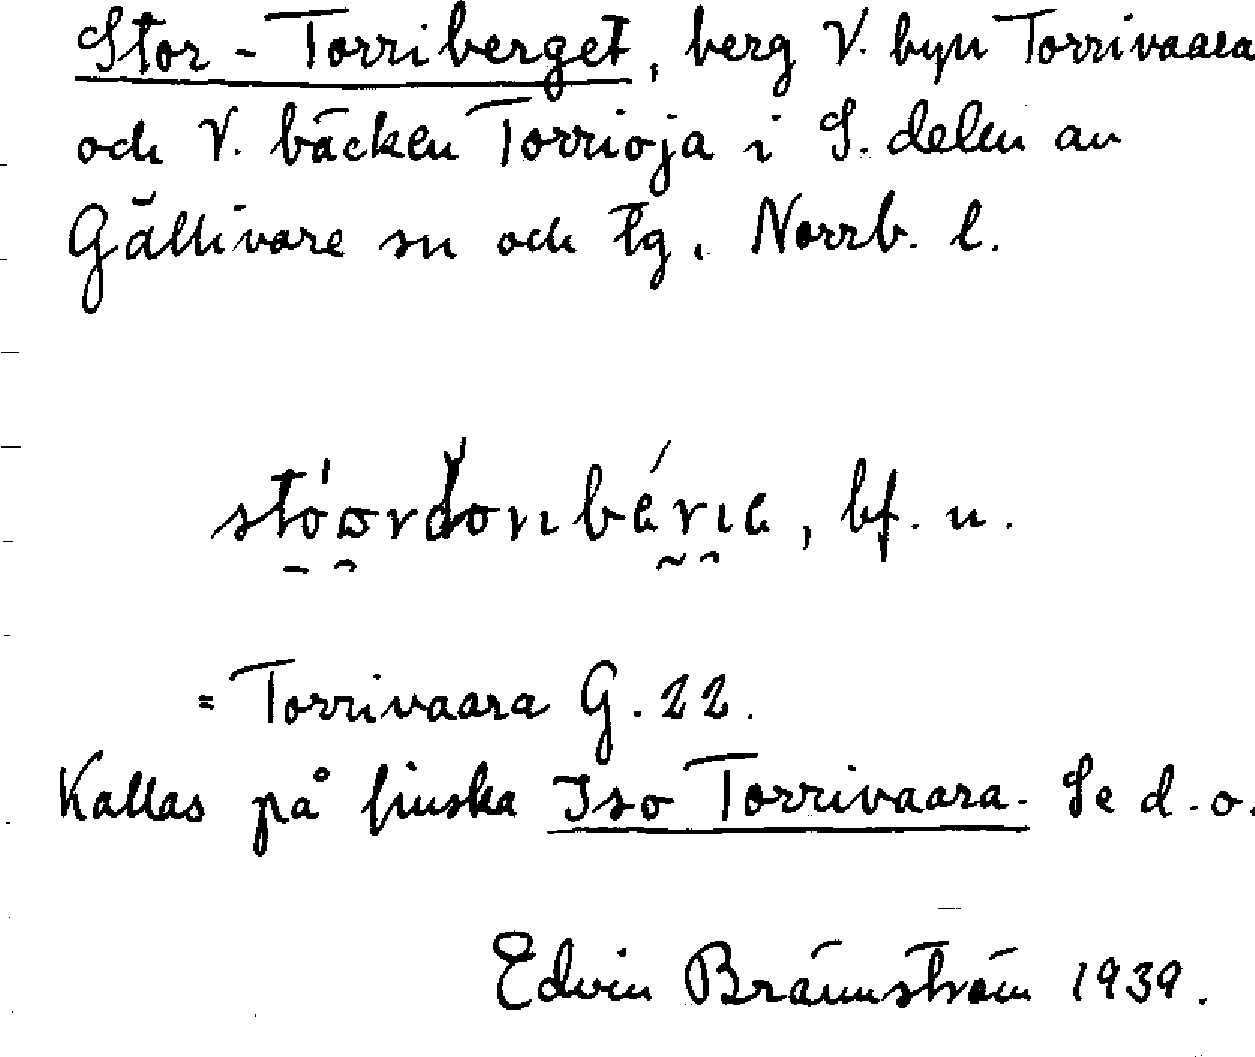 Stor-Torriberget, berg V. byn Torrivaara
och V. bäcken Torrioja i S. delen av
Gällivare sn och tg. Norrb. l.
bf. n.
= Torrivaara G. 22.
Kallas på finska Iso Torrivaara. Se d. o.
Edvin Brännström 1939.